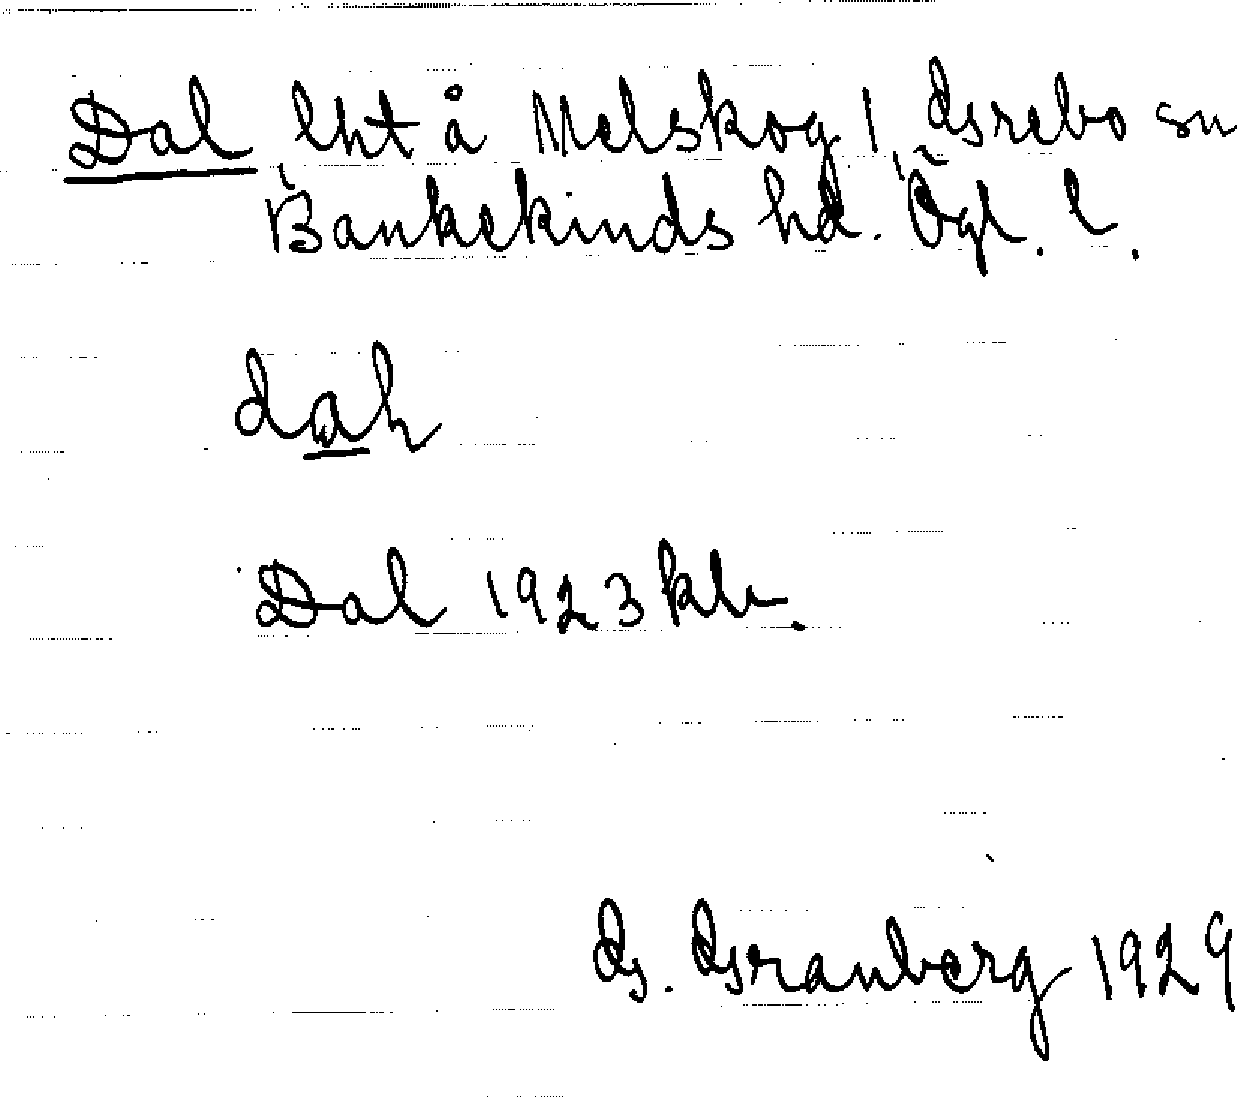 Dal lht å Melskog 1, Grebo sn
Bankekinds hd. Ögl. l.
dal
Dal 1923 kbr.
G. Granberg 1929